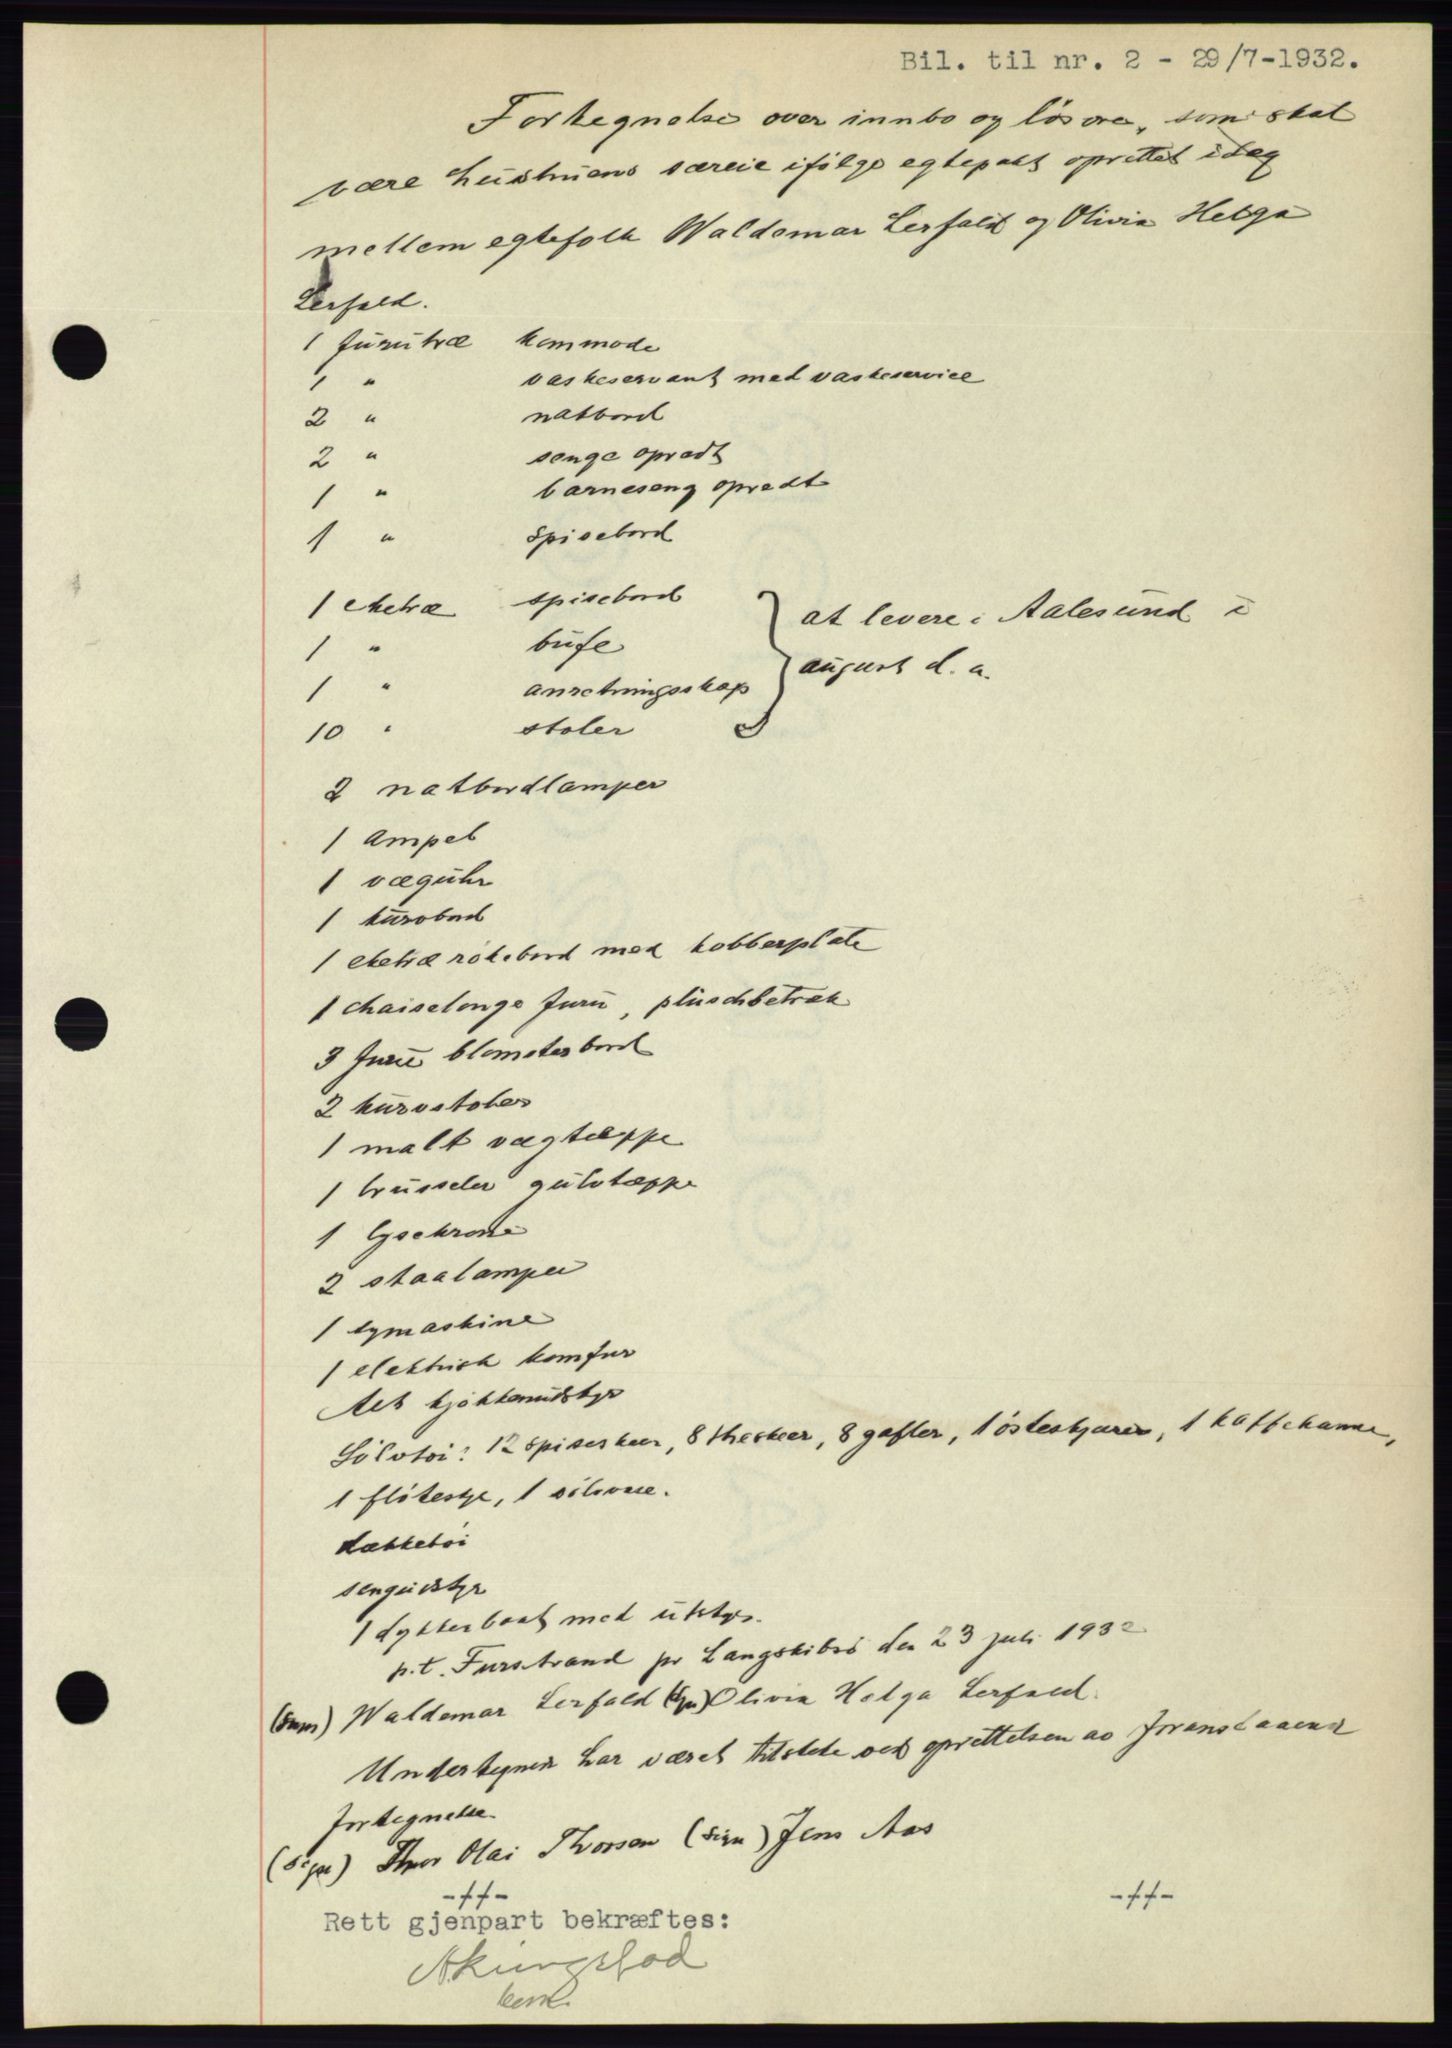 Bil. til nr. 2 - 29/7-1932.
Fortegnelse over innbo og løsøre, som skal
være hustruens særeie ifølge egtepakt oprettet idag
mellem egtefolk Waldemar Lerfald og Olivia Helga
Lerfald.
1 furutræ kommode
1 " vaskeservant med vaskeservice
2 " natbord
2 " senge opredt
1 " barneseng opredt
1 " spisebord
1 eketræ spisebord
1 " bufe
1 " anretningsskap
10 " stoler
} at levere i Aalesund i
august d. a.
2 natbordlamper
1 Ampel
1 væguhr
1 kurvbord
1 eketræ rökebord med kobberplate
1 chaiselonge furu, plüschbetræk
3 furu blomsterbord
2 kurvstoler
1 malt vægtæppe
1 brusseler gulvtæppe
1 lysekrone
2 staalamper
1 symaskine
1 elektrisk komfur
Alt kjökkenutstyr
Sölvtöi: 12 spiseskeer, 8 theskeer, 8 gafler, 1 osteskjærer, 1 kaffekanne,
1 flötestje, 1 sölvvase.
Dækketöi
sengutstyr
1 dykkerbaat med utstyr.
p.t. Furstrand pr Langskibsö den 23 juli 1932
(sign) Waldemar Lerfald (sign) Olivia Helga Lerfald.
Undertegnede har været tilstede ved oprettelsen av foranstaaende
fortegnelse.
(sign) Thor Olai Thorsen (sign) Jens Aas
-//- -//-
Rett gjenpart bekræftes: